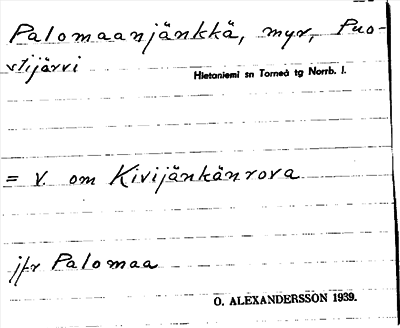 Palomaanjänkkä, myr, Puo-
stijärvi
Hietaniemi sn Torneå tg Norrb. l.
= v. om Kivijänkänrova
jfr Palomaa
O. ALEXANDERSSON 1939.